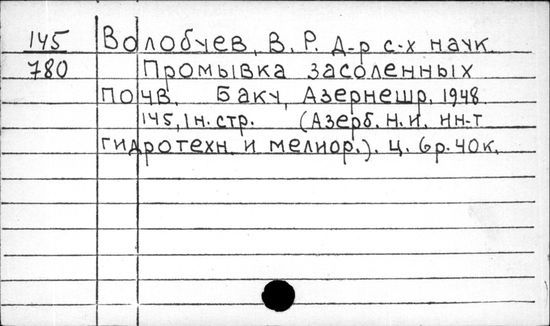 145 Волобуев, В. Р. Д-р с-х наук.
780 Промывка засоленных
почв. Баку, Азернешр, 1948.
145, 1н.стр. (Азерб. н. и. ин-т
гидротехн. и мелиор.). ц. 6р.40к.